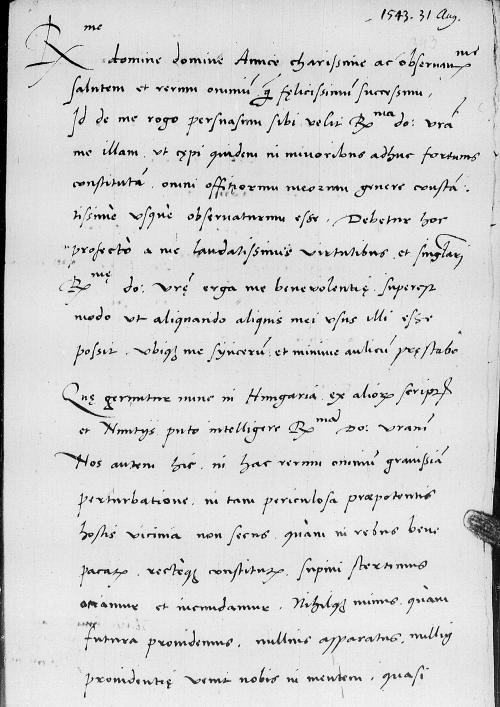 1543. 31 Aug.
R me
domine domine Amice charissime ac observan me
salutem et rerum omniũ ꝙ̃ fęlicissimũ successum,
Id de me rogo persuasum sibi velit R ma do: vrã
me illam, ut cępi quidem in minoribus adhuc fortunis
constitutã, omni offitiorum meorum genere constã,
tissimè usquè observaturum esse. Debetur hoc
profectò a me laudatissimis virtutibus, et singlari
R mę do: vrę erga me benevolentię. superest
modo ut aliquando aliquis mei usus illi esse
possit. ubiq me syncerũ, et minime aulicũ pręstabo
Quę geruntur nunc in Hungaria, ex alior script
et Nuntys puto intelligere R mam Do: vram
Nos autem hic, in hac rerum omniũ gravissiã
perturbatione, in tam periculosa præpotentis
hostis vicinia non secus, quàm in rebus bene
pacat, rectèq constitut, supini stertimus
ociamur et iucundamur. Nihilq minus, quàm
futura providemus, nullius apparatus, nulliq
providentię venit nobis in mentem, quasi